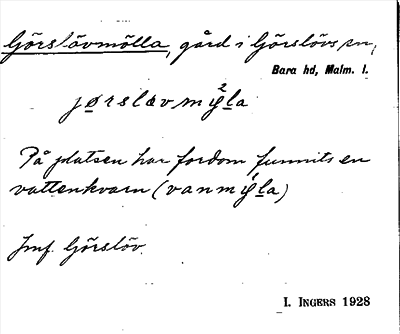 Görslövmölla, gård i Görslövs sn,
Bara hd, Malm. l.
jørslævmy̆la
På platsen har fordom funnits en
vattenkvarn (vanmy̆la)
Jmf. Görslöv.
I. INGERS 1928